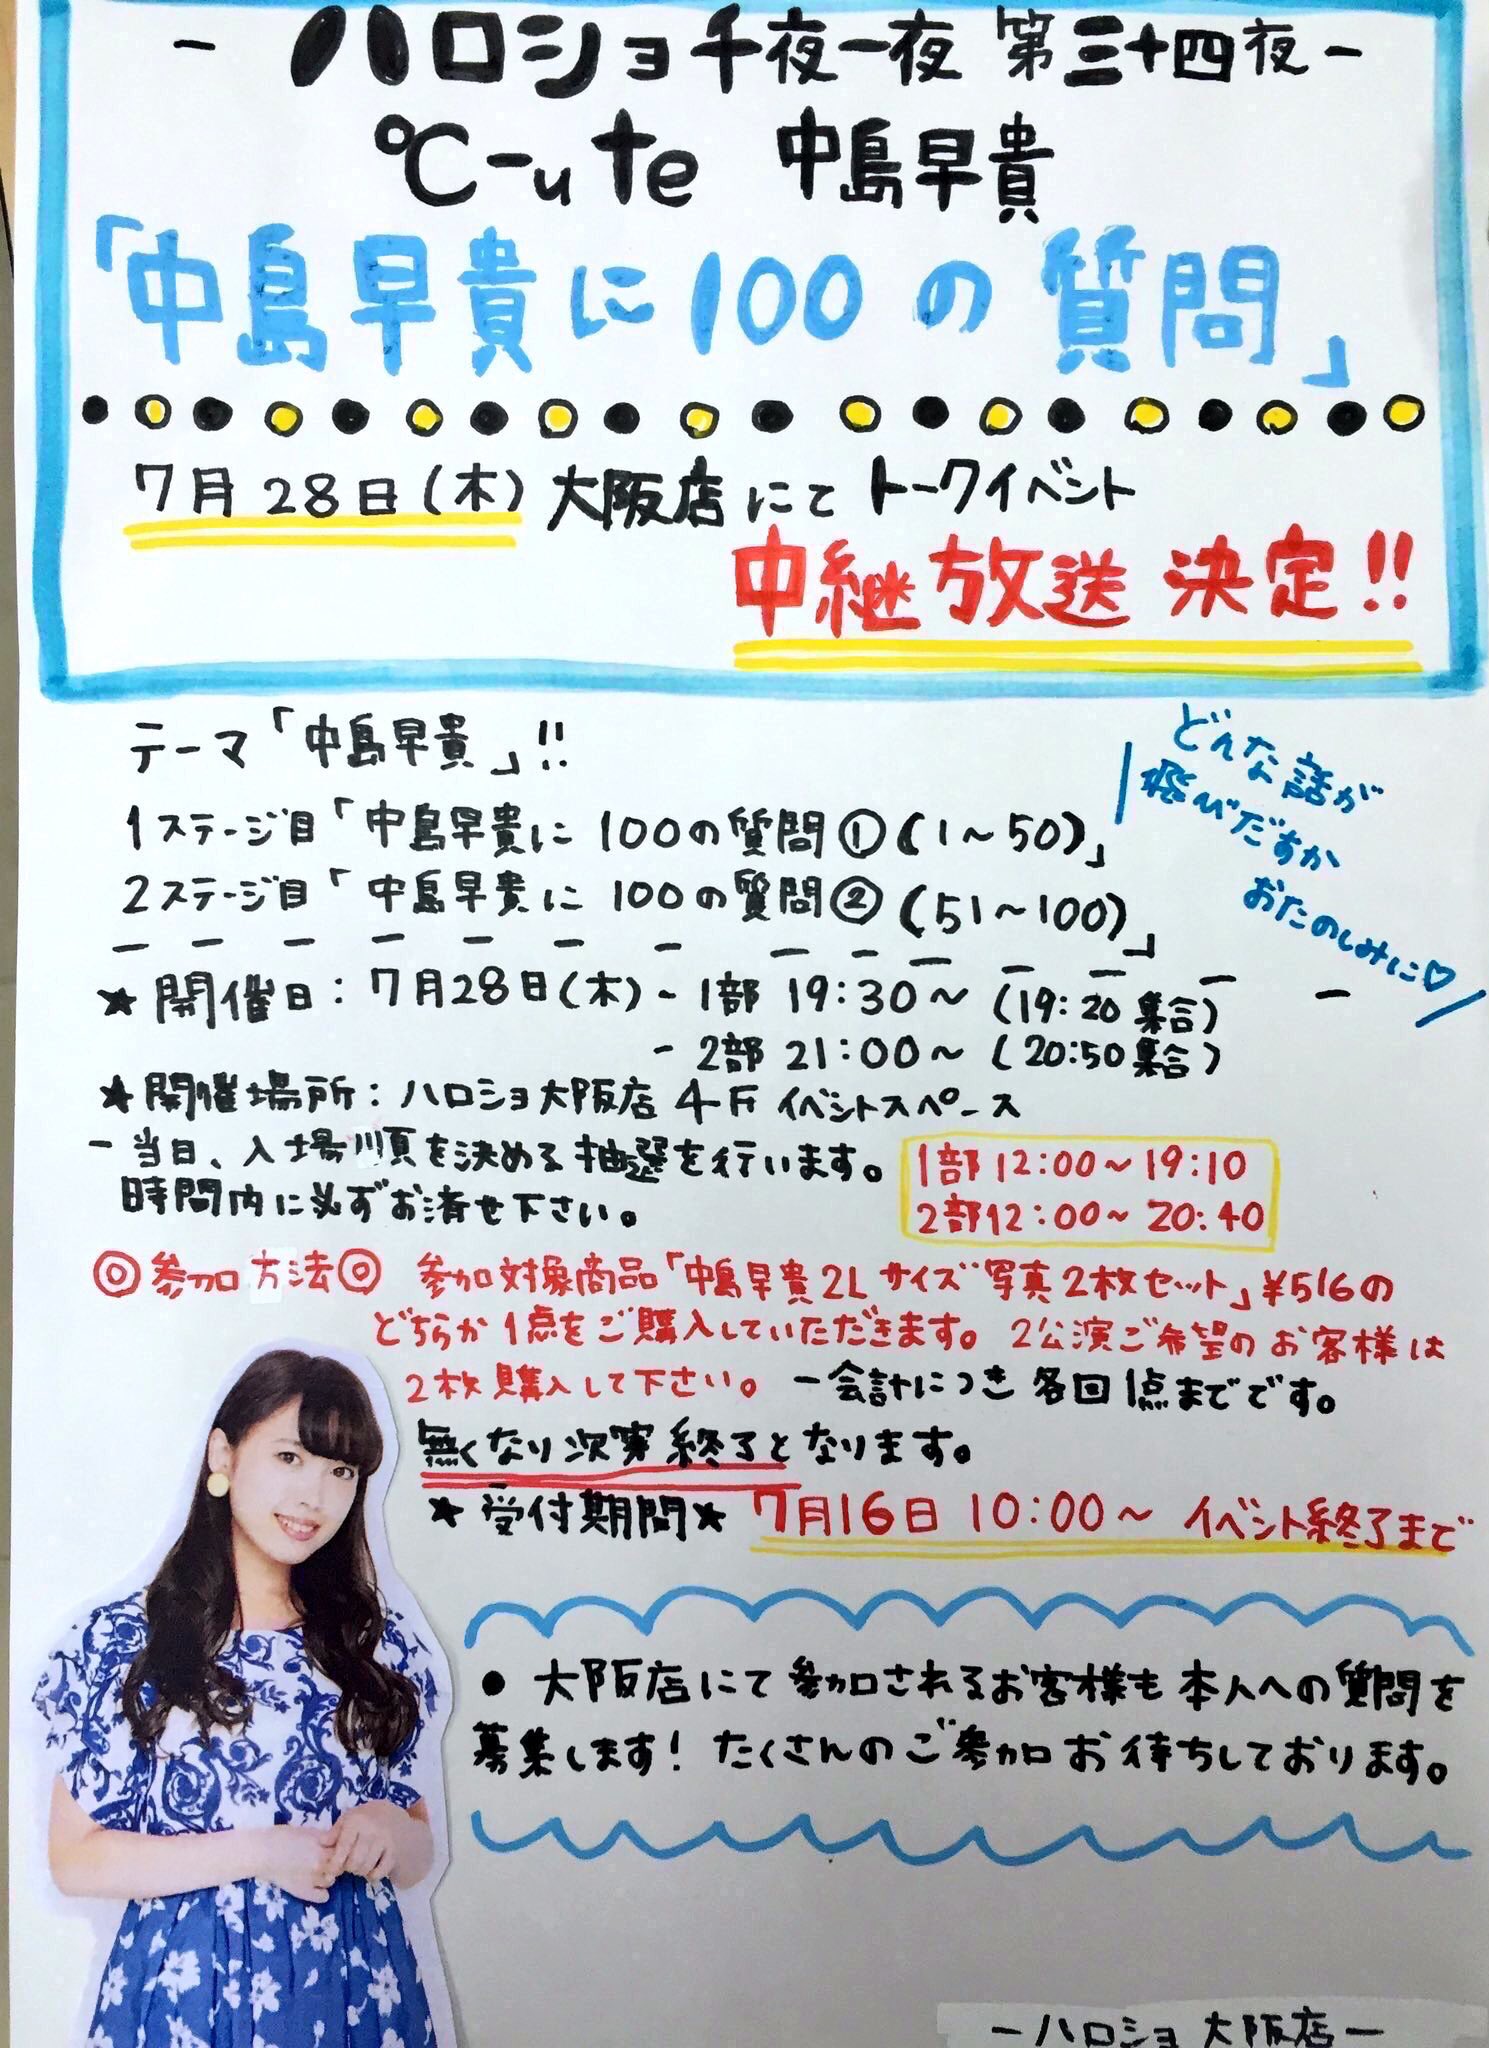 - ハロショ千夜一夜 第三十四夜 -
℃-ute 中島早貴
「中島早貴に100の質問」
7月28日(木)大阪店にてトークイベント
中継放送決定!!
テーマ「中島早貴」!!
1ステージ目「中島早貴に100の質問①(1〜50)」
2ステージ目「中島早貴に100の質問②(51〜100)」
どんな話が
飛びだすか
おたのしみに♡
★開催日:7月28日(木)-1部 19:30〜(19:20集合)
-2部 21:00〜(20:50集合)
★開催場所:ハロショ大阪店 4F イベントスペース
-当日、入場順を決める抽選を行います。
時間内に必ずお済せ下さい。
1部12:00〜19:10
2部12:00〜20:40
◎参加方法◎ 参加対象商品「中島早貴2Lサイズ写真2枚セット」¥516の
どちらか1点をご購入していただきます。2公演ご希望のお客様は
2枚購入して下さい。一会計につき各回1点までです。
無くなり次第終了となります。
★受付期間★ 7月16日 10:00〜 イベント終了まで
● 大阪店にて参加されるお客様も本人への質問を
募集します! たくさんのご参加お待ちしております。
-ハロショ 大阪店-